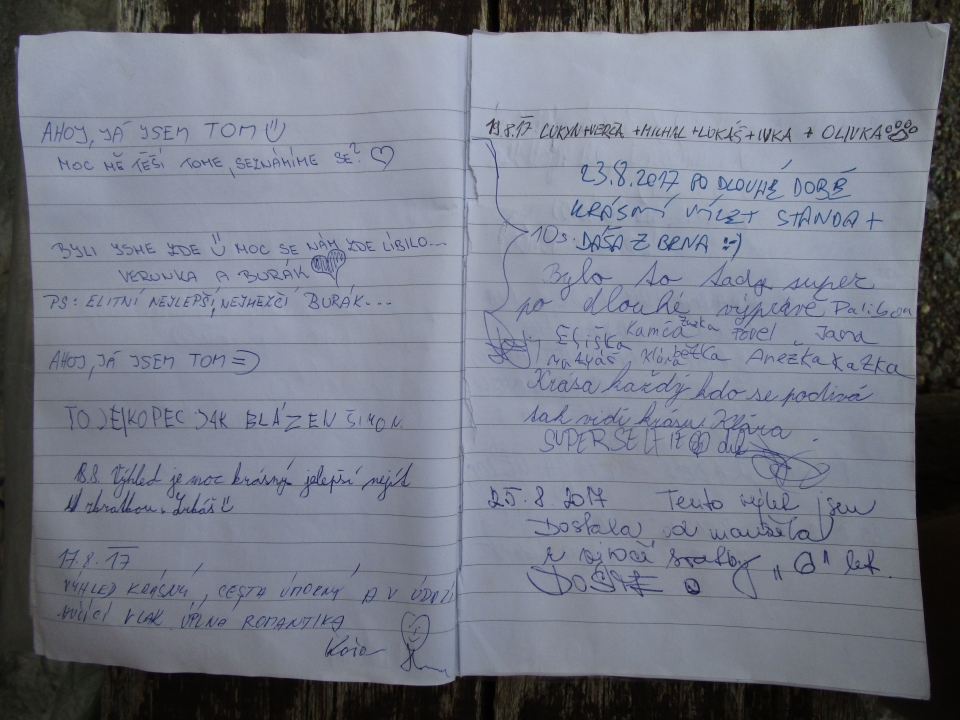 AHOJ, JÁ JSEM TOM
MOC MĚ TĚŠÍ TOME, SEZNÁMÍME SE?
BYLI JSME ZDE MOC SE NÁM ZDE LÍBILO...
VERUNKA A BURÁK
PS: ELITNÍ NEJLEPŠÍ, NEJHEKČÍ BURÁK...
AHOJ, JÁ JSEM TOM =)
TO JE KOPEC JAK BLÁZEN ŠIMON
Výhled je moc krásný jelepší nejít
zkratkou. Lukáš
17.8.17
VÝHLED KRÁSNÝ, CESTA ÚMORNÁ A V ÚDOLÍ
HUČÍCÍ VLAK ÚPLNÁ ROMANTIKA
19.8.17 +MICHAL+LUKÁŠ+IVKA + OLIVKA
23.8.2017 PO DLOUHÉ DOBĚ
KRÁSNÝ VÝLET STANDA +
DÁŠA Z BRNA :-)
Bylo to tady super
po dlouhé výpravě
Eliška Kamča Zuzka Pavel Jana
Matyáš, Klára Anežka
Krása každý kdo se podívá
tak vidí krásu Klára
SUPER
25.8 2017 Tento výlet jsem
Dostala od manžela
k výročí svatby "6" let.